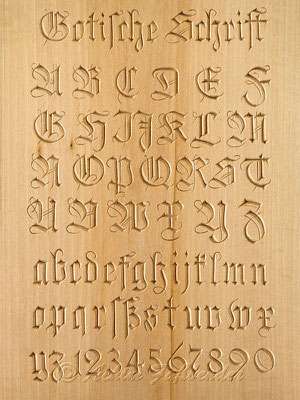 Gotiſche Schrift
A B C D E F
G H I J K L M
N O P Q R S T
U V W X Y Z
abcdefghijklmn
opqrſßstuvwx
yz1234567890